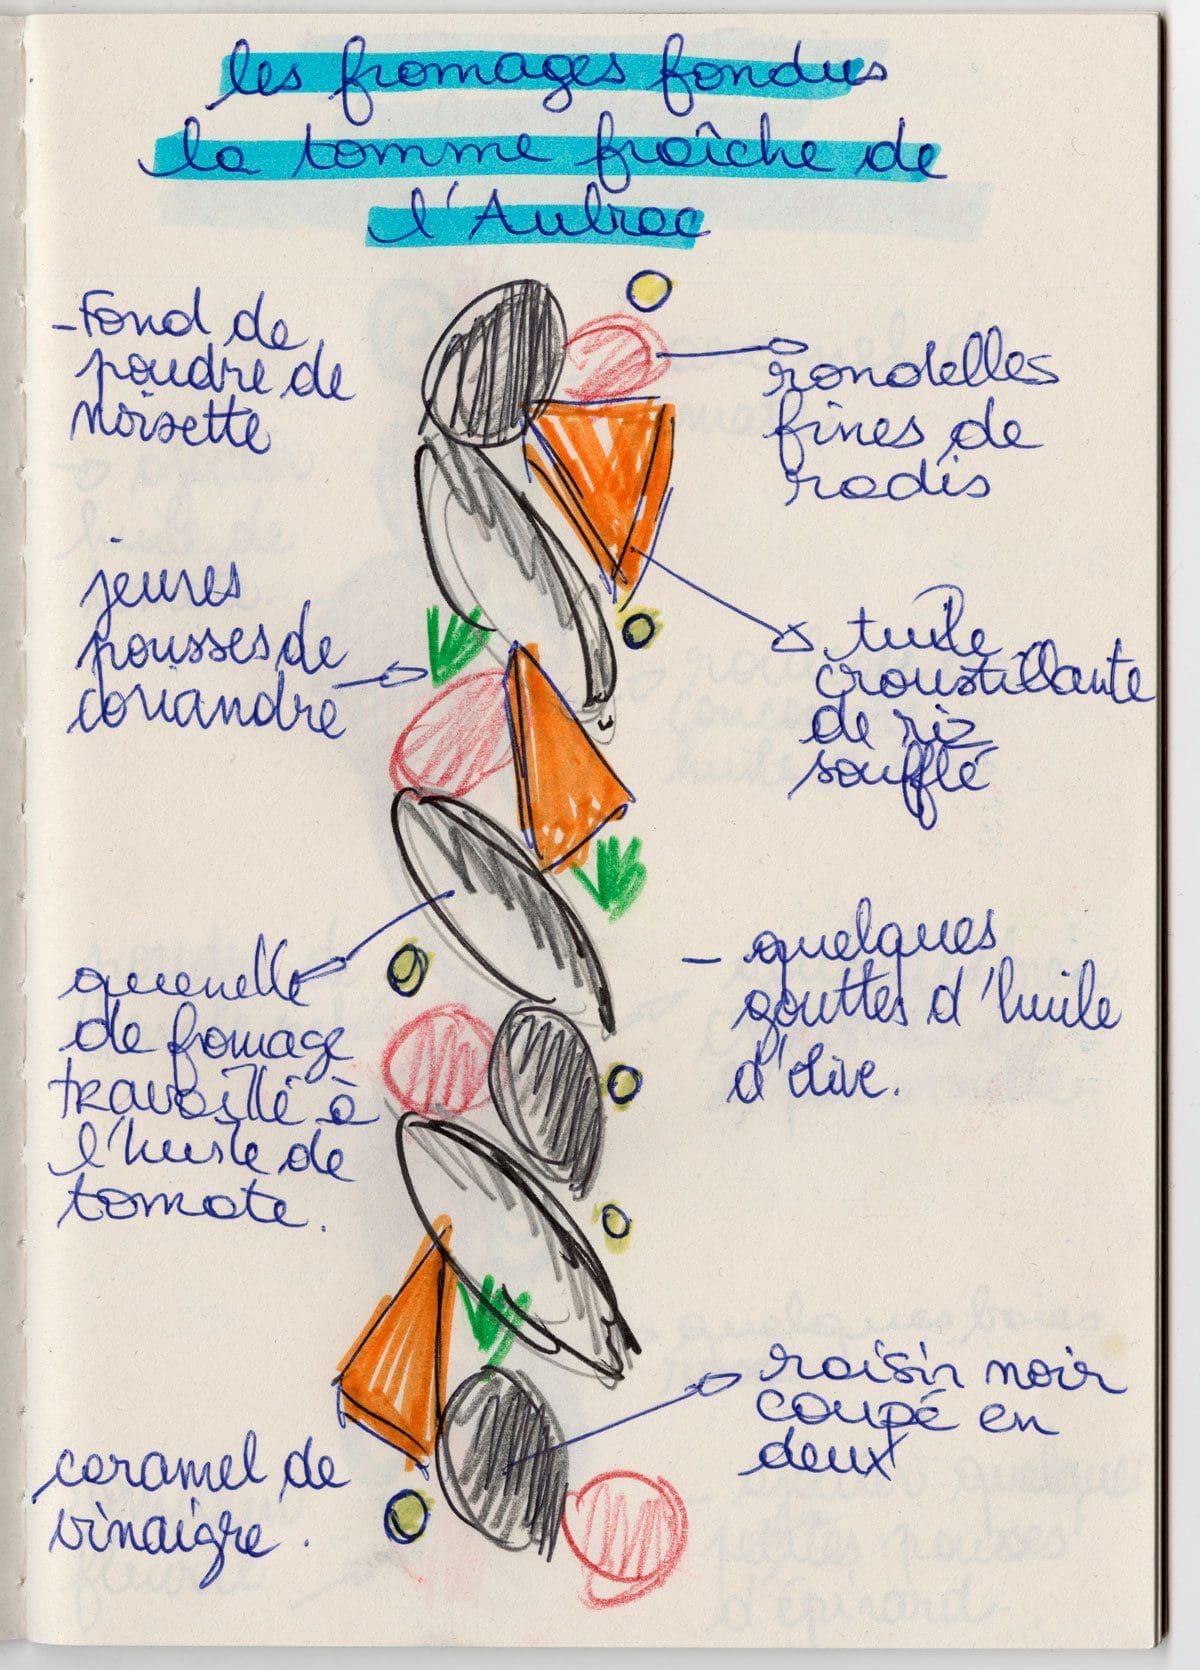 les fromages fondus
la tomme fraîche de
l'Aubrac
- Fond de
poudre de
noisette
rondelles
fines de
radis
jeunes
pousses de
coriandre
tuile
croustillante
de riz
soufflé
quenelle
de fromage
travaillé à
l'huile de
tomate.
- quelques
gouttes d'huile
d'olive.
raisin noir
coupé en
deux
caramel de
vinaigre.